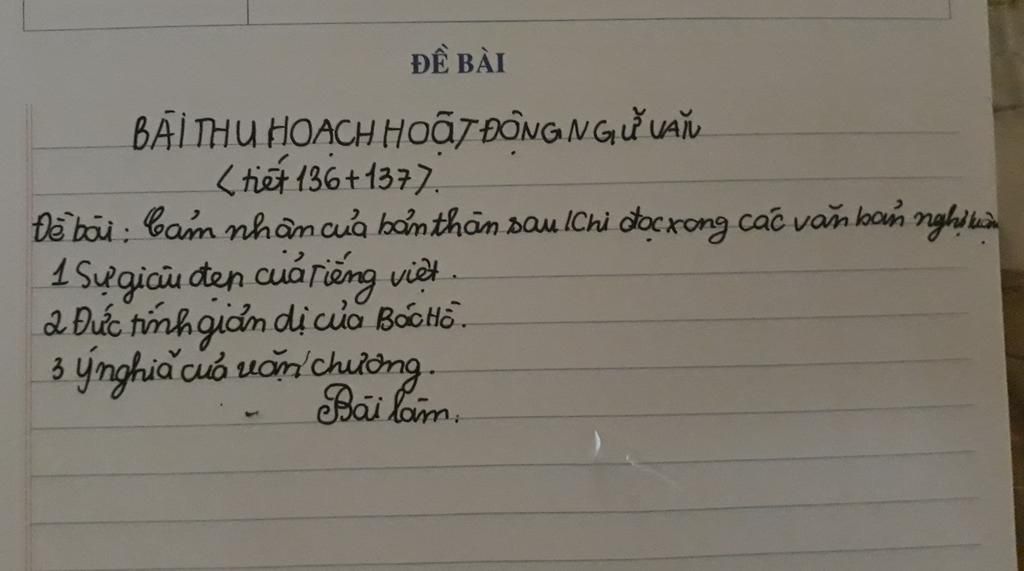 ĐỀ BÀI
BÀI THU HOẠCH HOẠT ĐỘNG NGỮ VĂN
<tiết 136+137>.
Đề bài: Cảm nhận của bản thân sau khi đọc xong các văn bản nghị luận
1 Sự giàu đẹp của Tiếng việt.
2 Đức tính giản dị của Bác Hồ.
3 Ý nghĩa của văn chương.
- Bài làm.